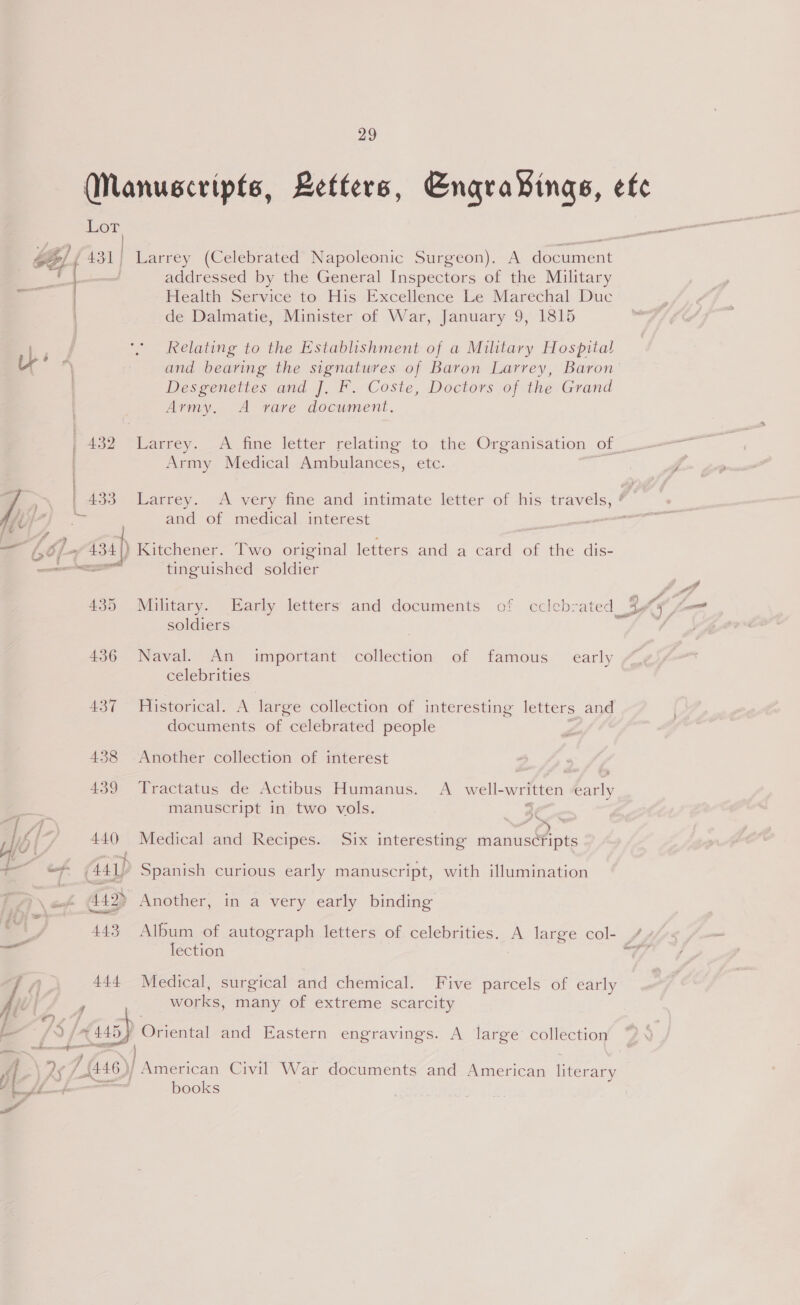 29
Manuscripts, Letters, Engravings, etc
Lot
431 Larrey (Celebrated Napoleonic Surgeon). A document
addressed by the General Inspectors of the Military
Health Service to His Excellence Le Marechal Duc
de Dalmatie, Minister of War, January 9, 1815
*⁎* Relating to the Establishment of a Military Hospital
and bearing the signatures of Baron Larrey, Baron
Desgenettes and J. F. Coste, Doctors of the Grand
Army. A rare document.
432 Larrey. A fine letter relating to the Organisation of
Army Medical Ambulances, etc.
433 Larrey. A very fine and intimate letter of his travels,
and of medical interest
434 Kitchener. Two original letters and a card of the dis-
tinguished soldier
435 Military. Early letters and documents of cclebrated
soldiers
436 Naval. An important collection of famous early
celebrities
437 Historical. A large collection of interesting letters and
documents of celebrated people
438 Another collection of interest
439 Tractatus de Actibus Humanus. A well-written early
manuscript in two vols.
440 Medical and Recipes. Six interesting manuscripts
441 Spanish curious early manuscript, with illumination
442 Another, in a very early binding
443 Album of autograph letters of celebrities. A large col-
lection
444 Medical, surgical and chemical. Five parcels of early
works, many of extreme scarcity
445 Oriental and Eastern engravings. A large collection
446 American Civil War documents and American literary
books